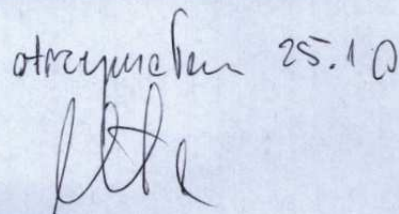 otrzymałem 25.10